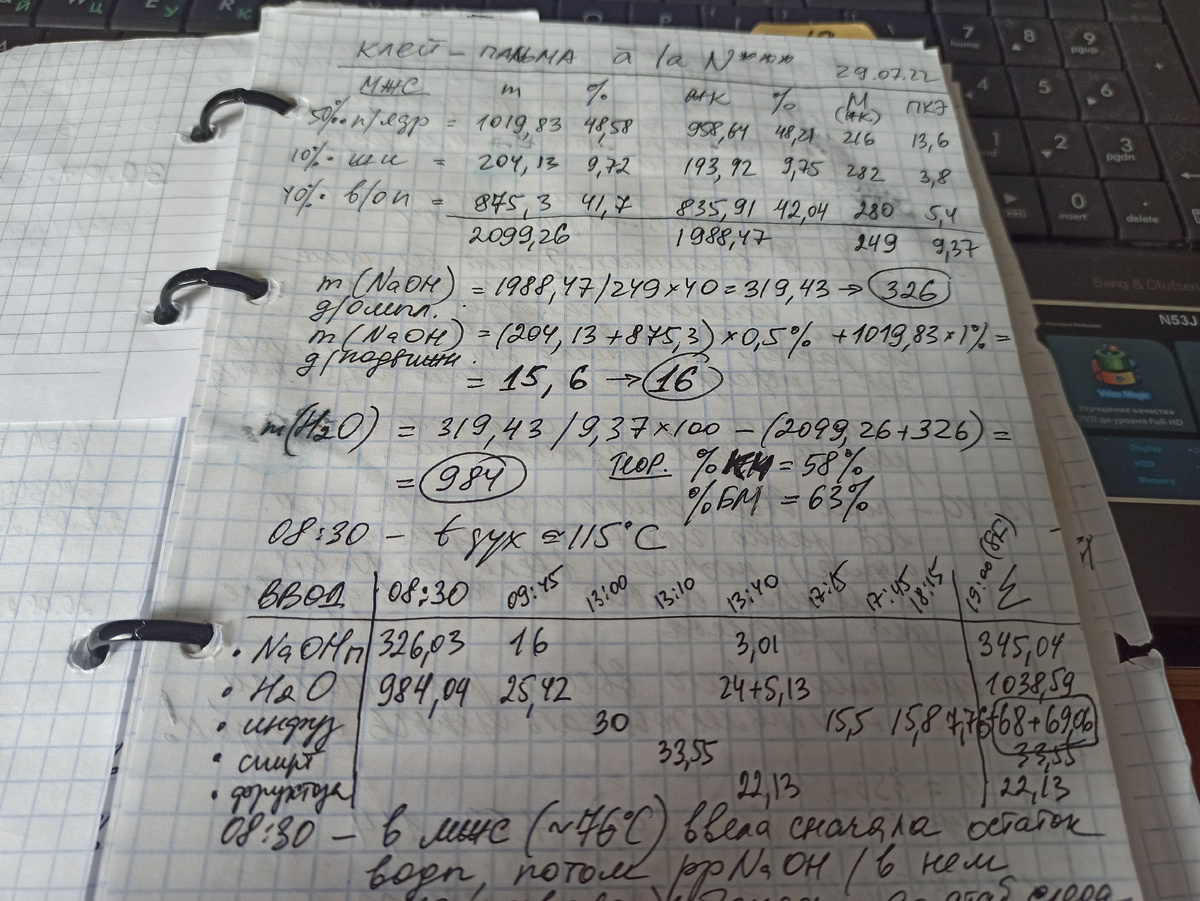 КЛЕЙ – ПАЛЬМА а la N*** 29.07.22
МЖС m % ЖК % М (ЖК) ПКЭ
50% п/ядр = 1019,83 48,58 958,64 48,21 216 13,6
10% ши = 204,13 9,72 193,92 9,75 282 3,8
40% в/оп = 875,3 41,7 835,91 42,04 280 5,4
2099,26 1988,47 249 9,37
m(NaOH) = 1988,47/249×40=319,43 → 326
д/омыл.
m(NaOH) = (204,13+875,3)×0,5% +1019,83×1%=
д/подвижн.
= 15,6 → 16
m(H2O) = 319,43/9,37×100 – (2099,26+326)=
= 984 Теор. % = 58%
%БМ = 63%
08:30 – t дух ≈115°C
ВВОД 08:30 09:45 13:00 13:10 13:40 17:15 17:45 18:15 19:00 Σ
• NaOHп 326,03 16 3,01 345,04
• H2O 984,04 25,42 24+5,13 1038,59
• инфуз 30 15,5 15,8 7,76 68+69,06
• спирт 33,55 33,55
• фруктоза 22,13 22,13
08:30 – в мжс (~76°C) ввела сначала остаток
воды, потом рр NaOH / в нем
7 home
8
9 pgup
4
5
6
1 end
2
3 pgdn
0 insert
. delete
Bang & Olufsen
N53J
Video Magic
Улучшение качества
DVD до уровня Full-HD
Display
HDD
Memory